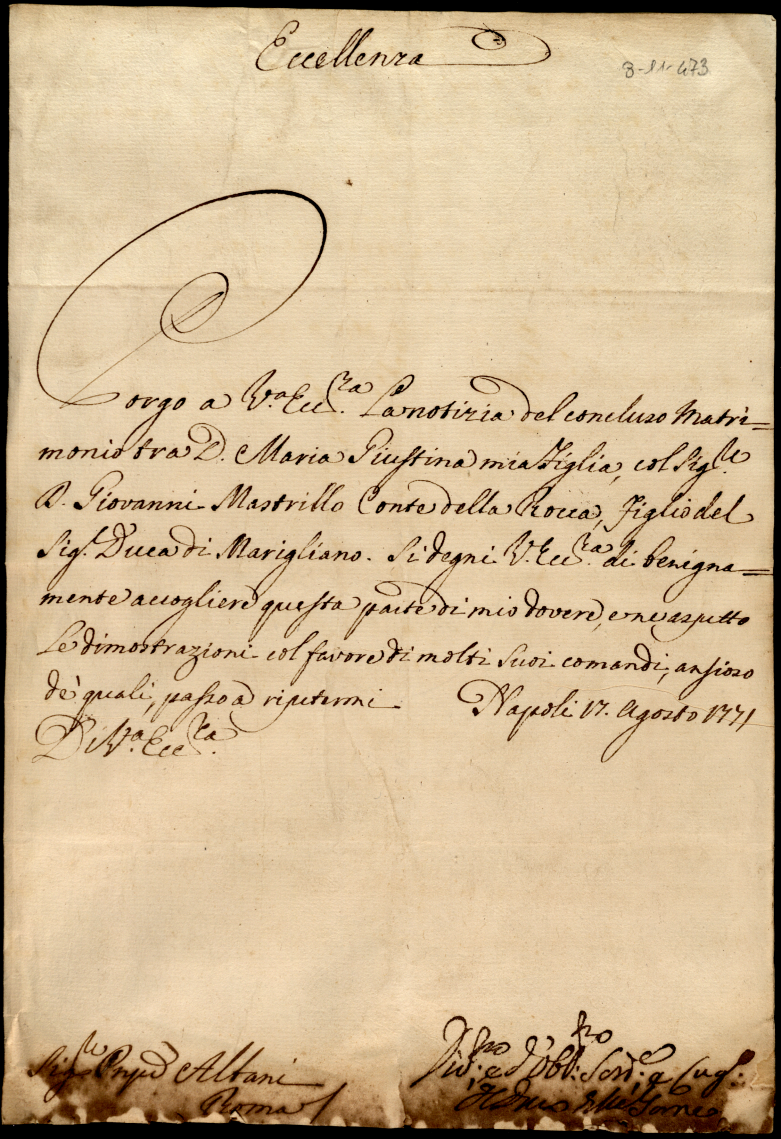 Eccellenza
8-11-473
Porgo a V.a Ecc.za La notizia del concluso Matri=
monio tra D. Maria Giustina mia Figlia, col Sig.re
D. Giovanni Mastrillo Conte della Rocca, Figlio del
Sig.r Duca di Marigliano. Si degni V. Ecc.za di benigna=
mente accogliere questa parte di mio dovere, e ne aspetto
Le dimostrazioni col favore di molti Suoi comandi, ansioso
de' quali passo a ripetermi Napoli 17. Agosto 1771
Di V.a Ecc.za
Sig.re Prnpe Albani
Roma
Div.mo ed Obb.mo Serv.e